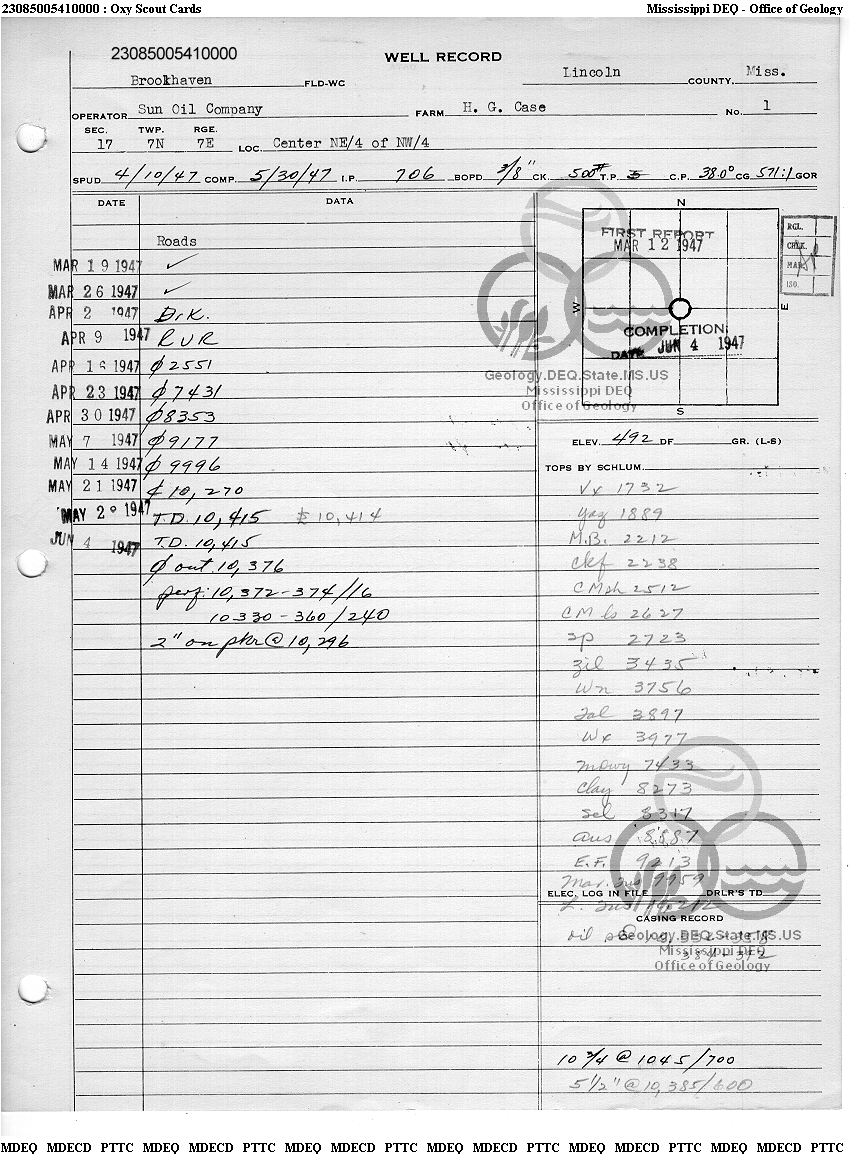 23085005410000 : Oxy Scout Cards Mississippi DEQ - Office of Geology
23085005410000
WELL RECORD
Brookhaven FLD-WC Lincoln COUNTY, Miss.
OPERATOR Sun Oil Company FARM H. G. Case No. 1
SEC. TWP. RGE.
17 7N 7E LOC. Center NE/4 of NW/4
SPUD 4/10/47 COMP. 5/30/47 I.P. 706 BOPD 3/8" CK. 500# T.P. C.P. 38.0° CG 571:1 GOR
DATE DATA
N
W
E
S
FIRST REPORT
MAR 12 1947
COMPLETION
DATE JUN 4 1947
RGL.
CHK.
MAP
ISO.
Roads
MAR 19 1947 ✓
MAR 26 1947 ✓
APR 2 1947 Drk.
APR 9 1947 RUR
APR 16 1947 ∅ 2551
APR 23 1947 ∅ 7431
APR 30 1947 ∅ 8353
MAY 7 1947 ∅ 9177
MAY 14 1947 ∅ 9996
MAY 21 1947 ¢ 10,270
MAY 2 1947 T.D. 10,415 10,414
JUN 4 1947 T.D. 10,415
∅ out 10,376
perf: 10,372-374/16
10330-360/240
2" on pkr @ 10,296
Geology.DEQ.State.MS.US
Mississippi DEQ
Office of Geology
ELEV. 492 DF GR. (L-S)
TOPS BY SCHLUM.
Vx 1732
Yaz 1889
M.B. 2212
Ckf 2238
CMsh 2512
CM ls 2627
Sp 2723
Zil 3435
Wn 3756
Tal 3897
Wx 3977
Mdwy 7433
Clay 8273
Sel 8317
Aus 8887
E.F. 9213
Mar. Tus 9959
ELEC. LOG IN FILE DRLR'S TD
L. Tus
CASING RECORD
oil
Geology.DEQ.State.MS.US
Mississippi DEQ
Office of Geology
10 3/4 @ 1045/700
5 1/2" @ 10,385/600
MDEQ MDECD PTTC MDEQ MDECD PTTC MDEQ MDECD PTTC MDEQ MDECD PTTC MDEQ MDECD PTTC MDEQ MDECD PTTC